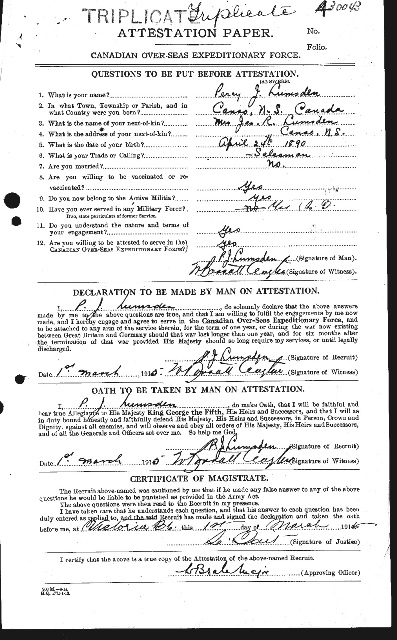 TRIPLICATE Triplicate A30043
ATTESTATION PAPER. No.
Folio.
CANADIAN OVER-SEAS EXPEDITIONARY FORCE.
QUESTIONS TO BE PUT BEFORE ATTESTATION.
(ANSWERS).
1. What is your name? Percy J. Lumsden
2. In what Town, Township or Parish, and in
what Country were you born? Canso, N.S. Canada
3. What is the name of your next-of-kin? Mrs Jas. R. Lumsden
4. What is the address of your next-of-kin? Canso, N.S.
5. What is the date of your birth? April 24th 1890
6. What is your Trade or Calling? Salesman
7. Are you married? No.
8. Are you willing to be vaccinated or re-
vaccinated? Yes
9. Do you now belong to the Active Militia? Yes
10. Have you ever served in any Military Force? No
If so, state particulars of former Service.
11. Do you understand the nature and terms of
your engagement? Yes
12. Are you willing to be attested to serve in the
CANADIAN OVER-SEAS EXPEDITIONARY FORCE? Yes
P J Lumsden (Signature of Man).
(Signature of Witness).
DECLARATION TO BE MADE BY MAN ON ATTESTATION.
I, P. J. Lumsden, do solemnly declare that the above answers
made by me to the above questions are true, and that I am willing to fulfil the engagements by me now
made, and I hereby engage and agree to serve in the Canadian Over-Seas Expeditionary Force, and
to be attached to any arm of the service therein, for the term of one year, or during the war now existing
between Great Britain and Germany should that war last longer than one year, and for six months after
the termination of that war provided His Majesty should so long require my services, or until legally
discharged.
P J Lumsden (Signature of Recruit)
Date 1st March 1915 (Signature of Witness)
OATH TO BE TAKEN BY MAN ON ATTESTATION.
I, P. J. Lumsden, do make Oath, that I will be faithful and
bear true Allegiance to His Majesty King George the Fifth, His Heirs and Successors, and that I will as
in duty bound honestly and faithfully defend His Majesty, His Heirs and Successors, in Person, Crown and
Dignity, against all enemies, and will observe and obey all orders of His Majesty, His Heirs and Successors,
and of all the Generals and Officers set over me. So help me God.
P J Lumsden (Signature of Recruit)
Date 1st March 1915 (Signature of Witness)
CERTIFICATE OF MAGISTRATE.
The Recruit above-named was cautioned by me that if he made any false answer to any of the above
questions he would be liable to be punished as provided in the Army Act.
The above questions were then read to the Recruit in my presence.
I have taken care that he understands each question, and that his answer to each question has been
duly entered as replied to, and the said Recruit has made and signed the declaration and taken the oath
before me, at Victoria B.C. this 1st day of March 1915
(Signature of Justice)
I certify that the above is a true copy of the Attestation of the above-named Recruit.
(Approving Officer)